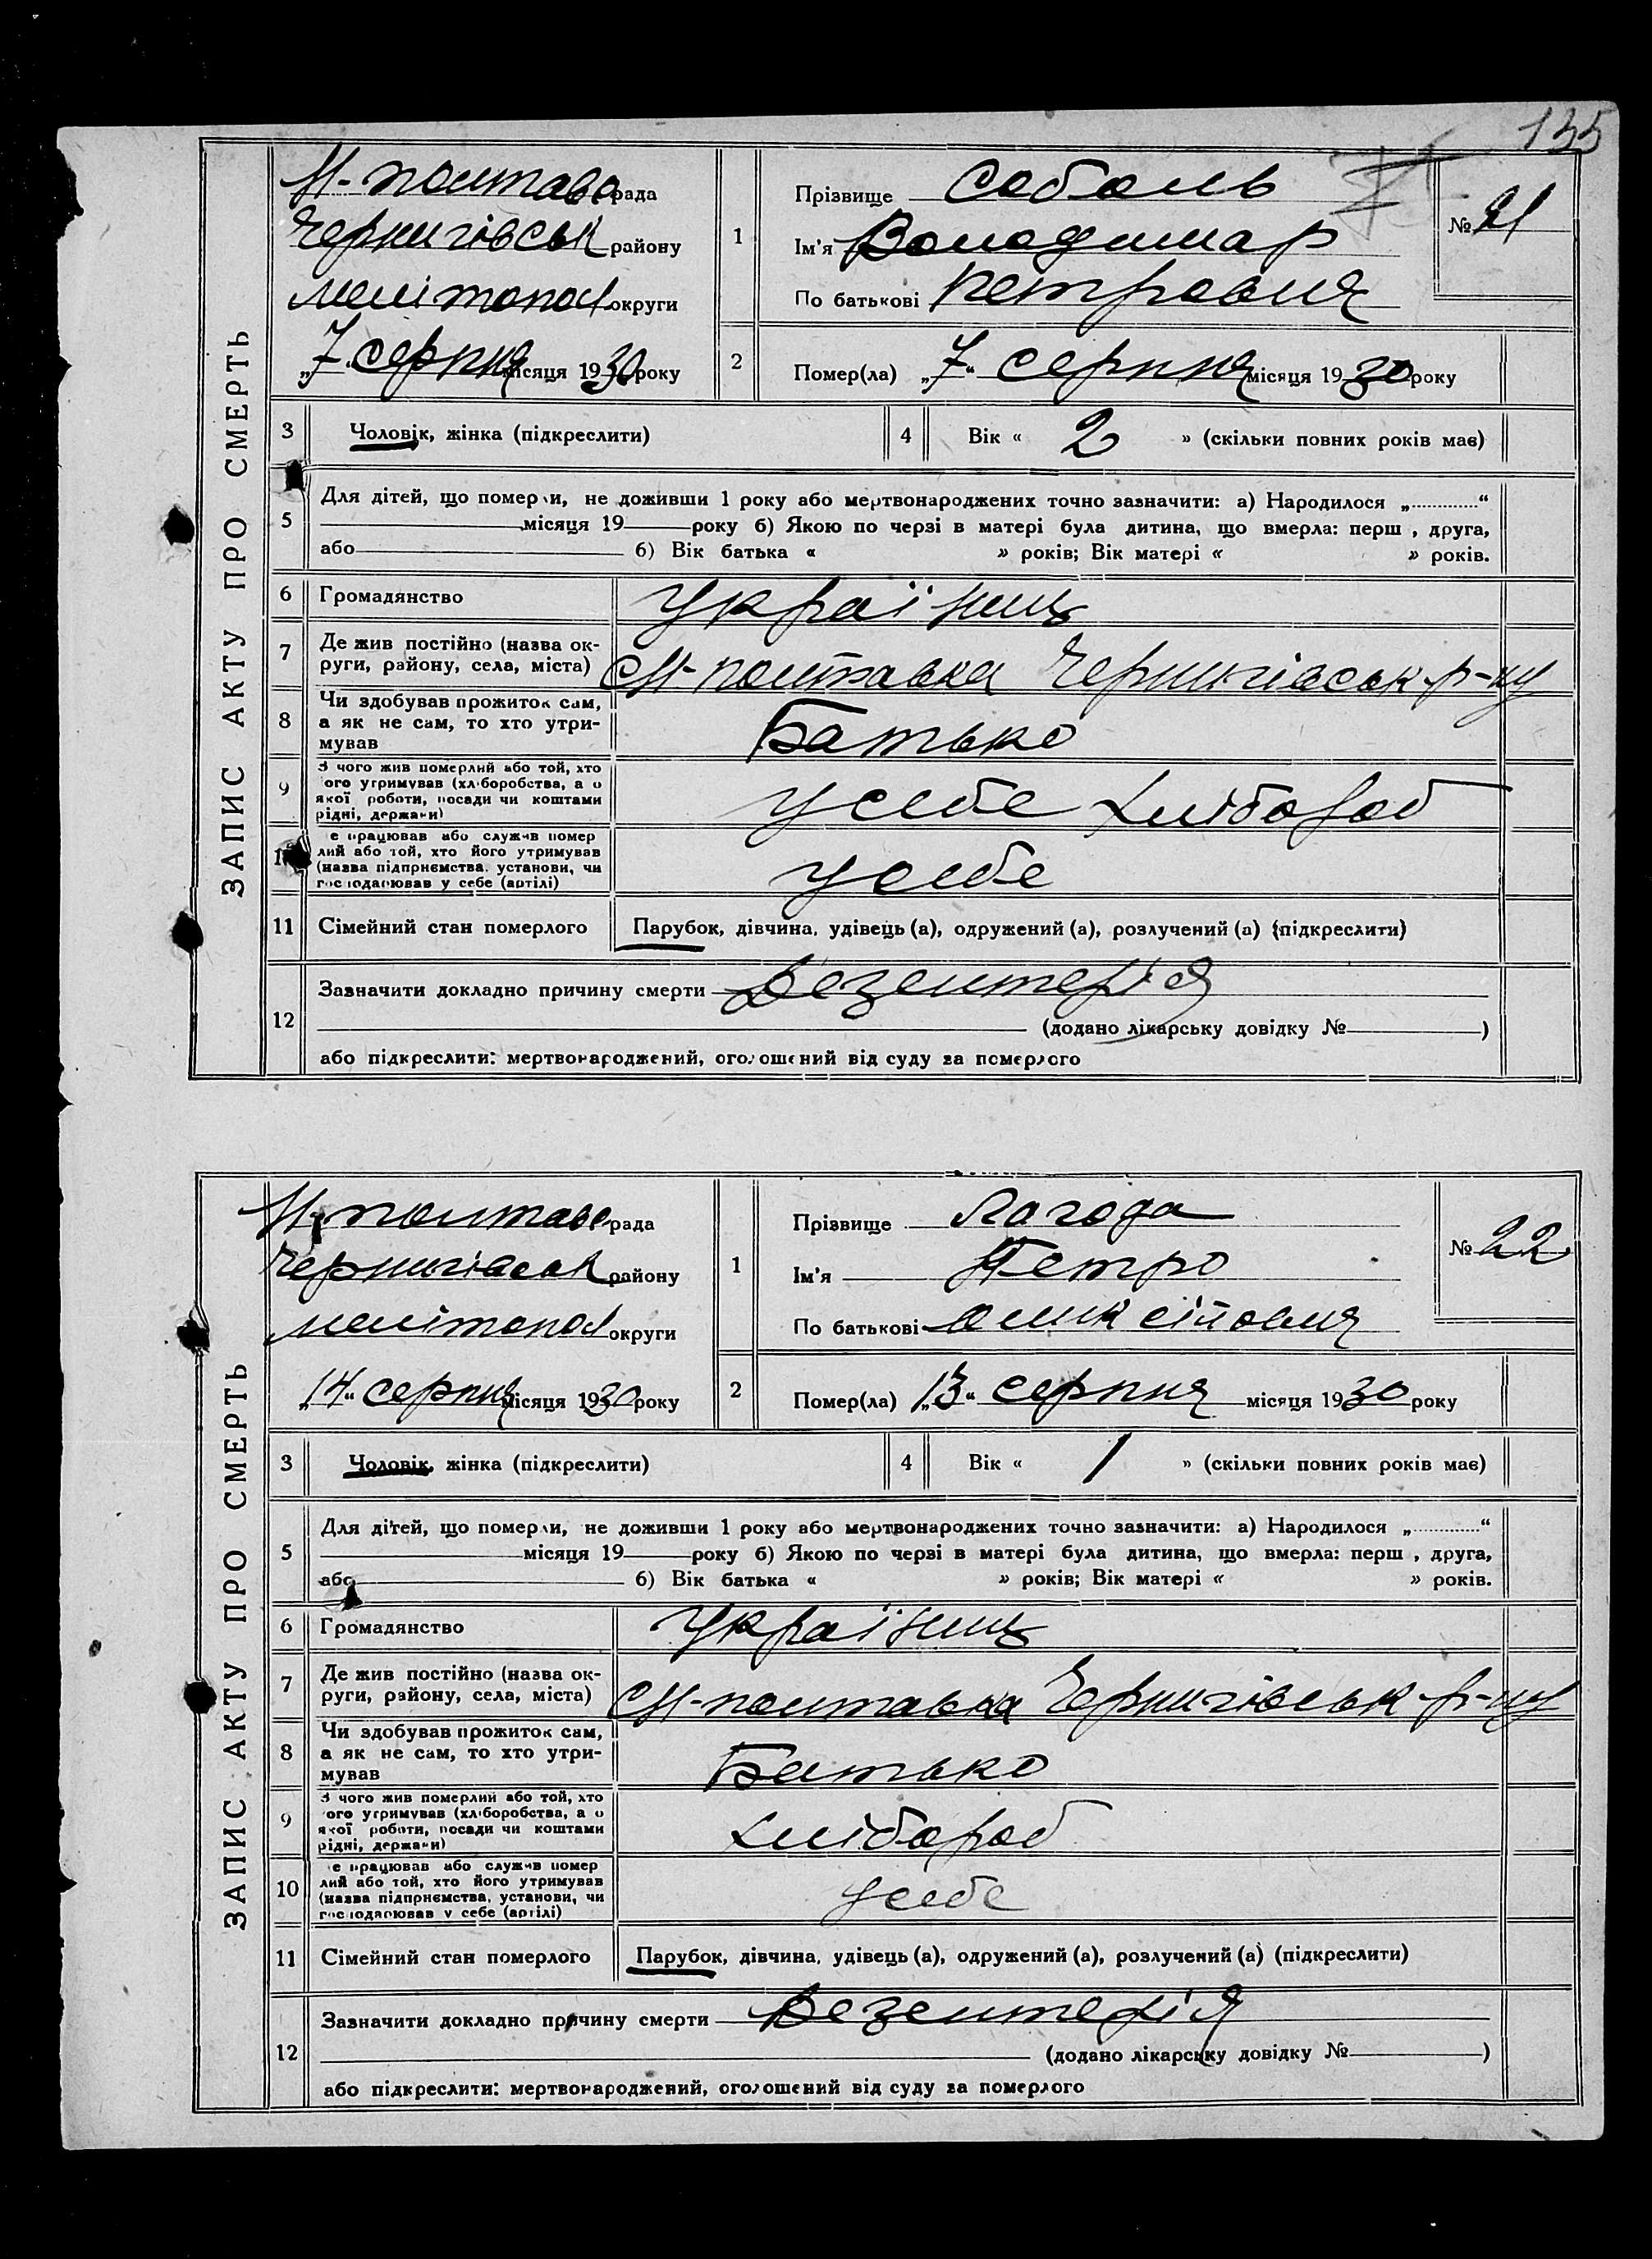 135
ЗАПИС АКТУ ПРО СМЕРТЬ
Н-полтавс рада
Чернигівськ району
мелітопол округи
„7“ серпня місяця 1930 року
1
Прізвище Соболь
Ім'я Володимар
По батькові Петрович
№ 21
2
Помер(ла) „7“ серпня місяця 1930 року
3 Чоловік, жінка (підкреслити)
4 Вік « 2 » (скільки повних років має)
5
Для дітей, що померли, не доживши 1 року або мертвонароджених точно зазначити: а) Народилося „............“
місяця 19 року б) Якою по черзі в матері була дитина, що вмерла: перш , друга,
або б) Вік батька « » років; Вік матері « » років.
6 Громадянство Українец
7 Де жив постійно (назва ок-
руги, району, села, міста) с Н-полтавка Чернигівськ р-ну
8 Чи здобував прожиток сам,
а як не сам, то хто утри-
мував Батько
9 З чого жив померлий або той, хто
ого утримував (хліборобства, а о
якої роботи, посади чи коштами
рідні, держави) усебе хлібороб
10 е працював або служив помер
лий або той, хто його утримував
(назва підприємства, установи, чи
господарював у себе (артілі) усебе
11 Сімейний стан померлого Парубок, дівчина, удівець (а), одружений (а), розлучений (а) (підкреслити)
12
Зазначити докладно причину смерти Дезентерія
(додано лікарську довідку № )
або підкреслити: мертвонароджений, оголошений від суду за померлого
ЗАПИС АКТУ ПРО СМЕРТЬ
Н-полтавс рада
Чернигівськ району
мелітопол округи
„14“ серпня місяця 1930 року
1
Прізвище Лагода
Ім'я Петро
По батькові Олик сійович
№ 22
2
Помер(ла) „13“ серпня місяця 1930 року
3 Чоловік, жінка (підкреслити)
4 Вік « 1 » (скільки повних років має)
5
Для дітей, що померли, не доживши 1 року або мертвонароджених точно зазначити: а) Народилося „............“
місяця 19 року б) Якою по черзі в матері була дитина, що вмерла: перш , друга,
або б) Вік батька « » років; Вік матері « » років.
6 Громадянство Українец
7 Де жив постійно (назва ок-
руги, району, села, міста) с Н-полтавка Чернигівськ р-ну
8 Чи здобував прожиток сам,
а як не сам, то хто утри-
мував Батько
9 З чого жив померлий або той, хто
ого утримував (хліборобства, а о
якої роботи, посади чи коштами
рідні, держави) хлібороб
10 е працював або служив помер
лий або той, хто його утримував
(назва підприємства, установи, чи
господарював у себе (артілі) усебе
11 Сімейний стан померлого Парубок, дівчина, удівець (а), одружений (а), розлучений (а) (підкреслити)
12
Зазначити докладно причину смерти Дезентерія
(додано лікарську довідку № )
або підкреслити: мертвонароджений, оголошений від суду за померлого